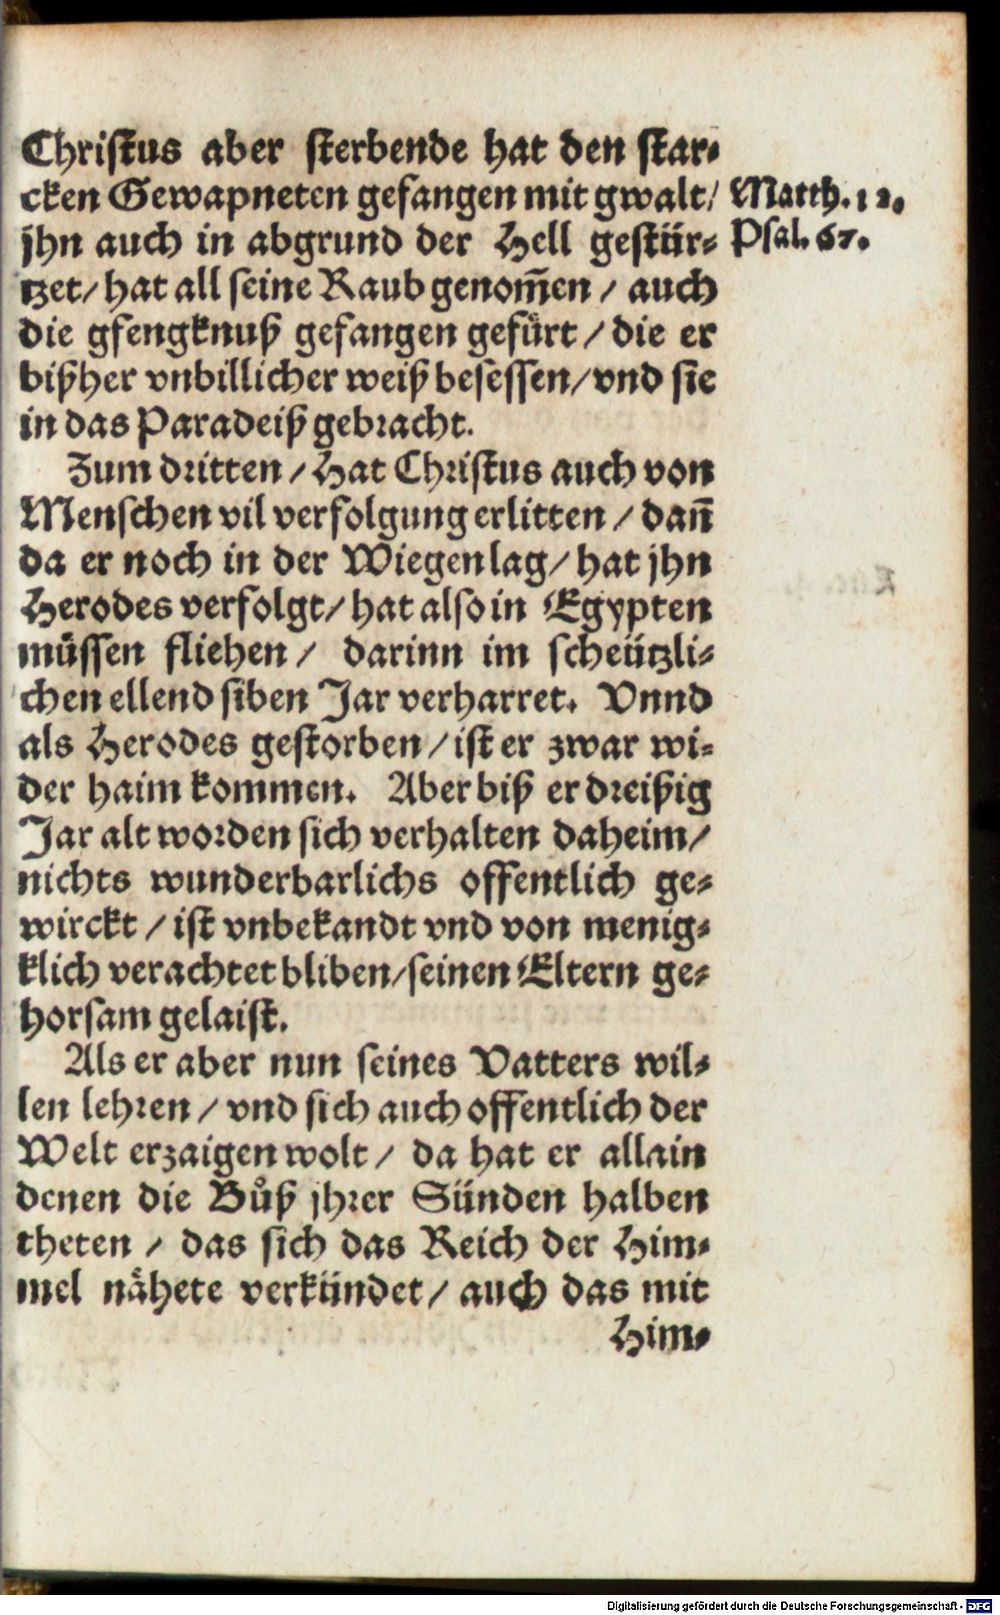 Christus aber sterbende hat den star-
cken Gewapneten gefangen mit gwalt/
jhn auch in abgrund der Hell gestür-
tzet/ hat all seine Raub genom̃en / auch
die gfengknuß gefangen gefürt / die er
bißher vnbillicher weiß besessen/ vnd sie
in das Paradeiß gebracht.
Matth. 12.
Psal. 67.
Zum dritten / Hat Christus auch von
Menschen vil verfolgung erlitten / dañ
da er noch in der Wiegen lag/ hat jhn
Herodes verfolgt/ hat also in Egypten
müssen fliehen / darinn im scheützli-
chen ellend siben Jar verharret. Vnnd
als Herodes gestorben / ist er zwar wi-
der haim kommen. Aber biß er dreißig
Jar alt worden sich verhalten daheim/
nichts wunderbarlichs offentlich ge-
wirckt / ist vnbekandt vnd von menig-
klich verachtet bliben/ seinen Eltern ge-
horsam gelaist.
Als er aber nun seines Vatters wil-
len lehren / vnd sich auch offentlich der
Welt erzaigen wolt / da hat er allain
denen die Bůß jhrer Sünden halben
theten / das sich das Reich der Him-
mel nåhete verkündet/ auch das mit
Him-
Digitalisierung gefördert durch die Deutsche Forschungsgemeinschaft - DFG